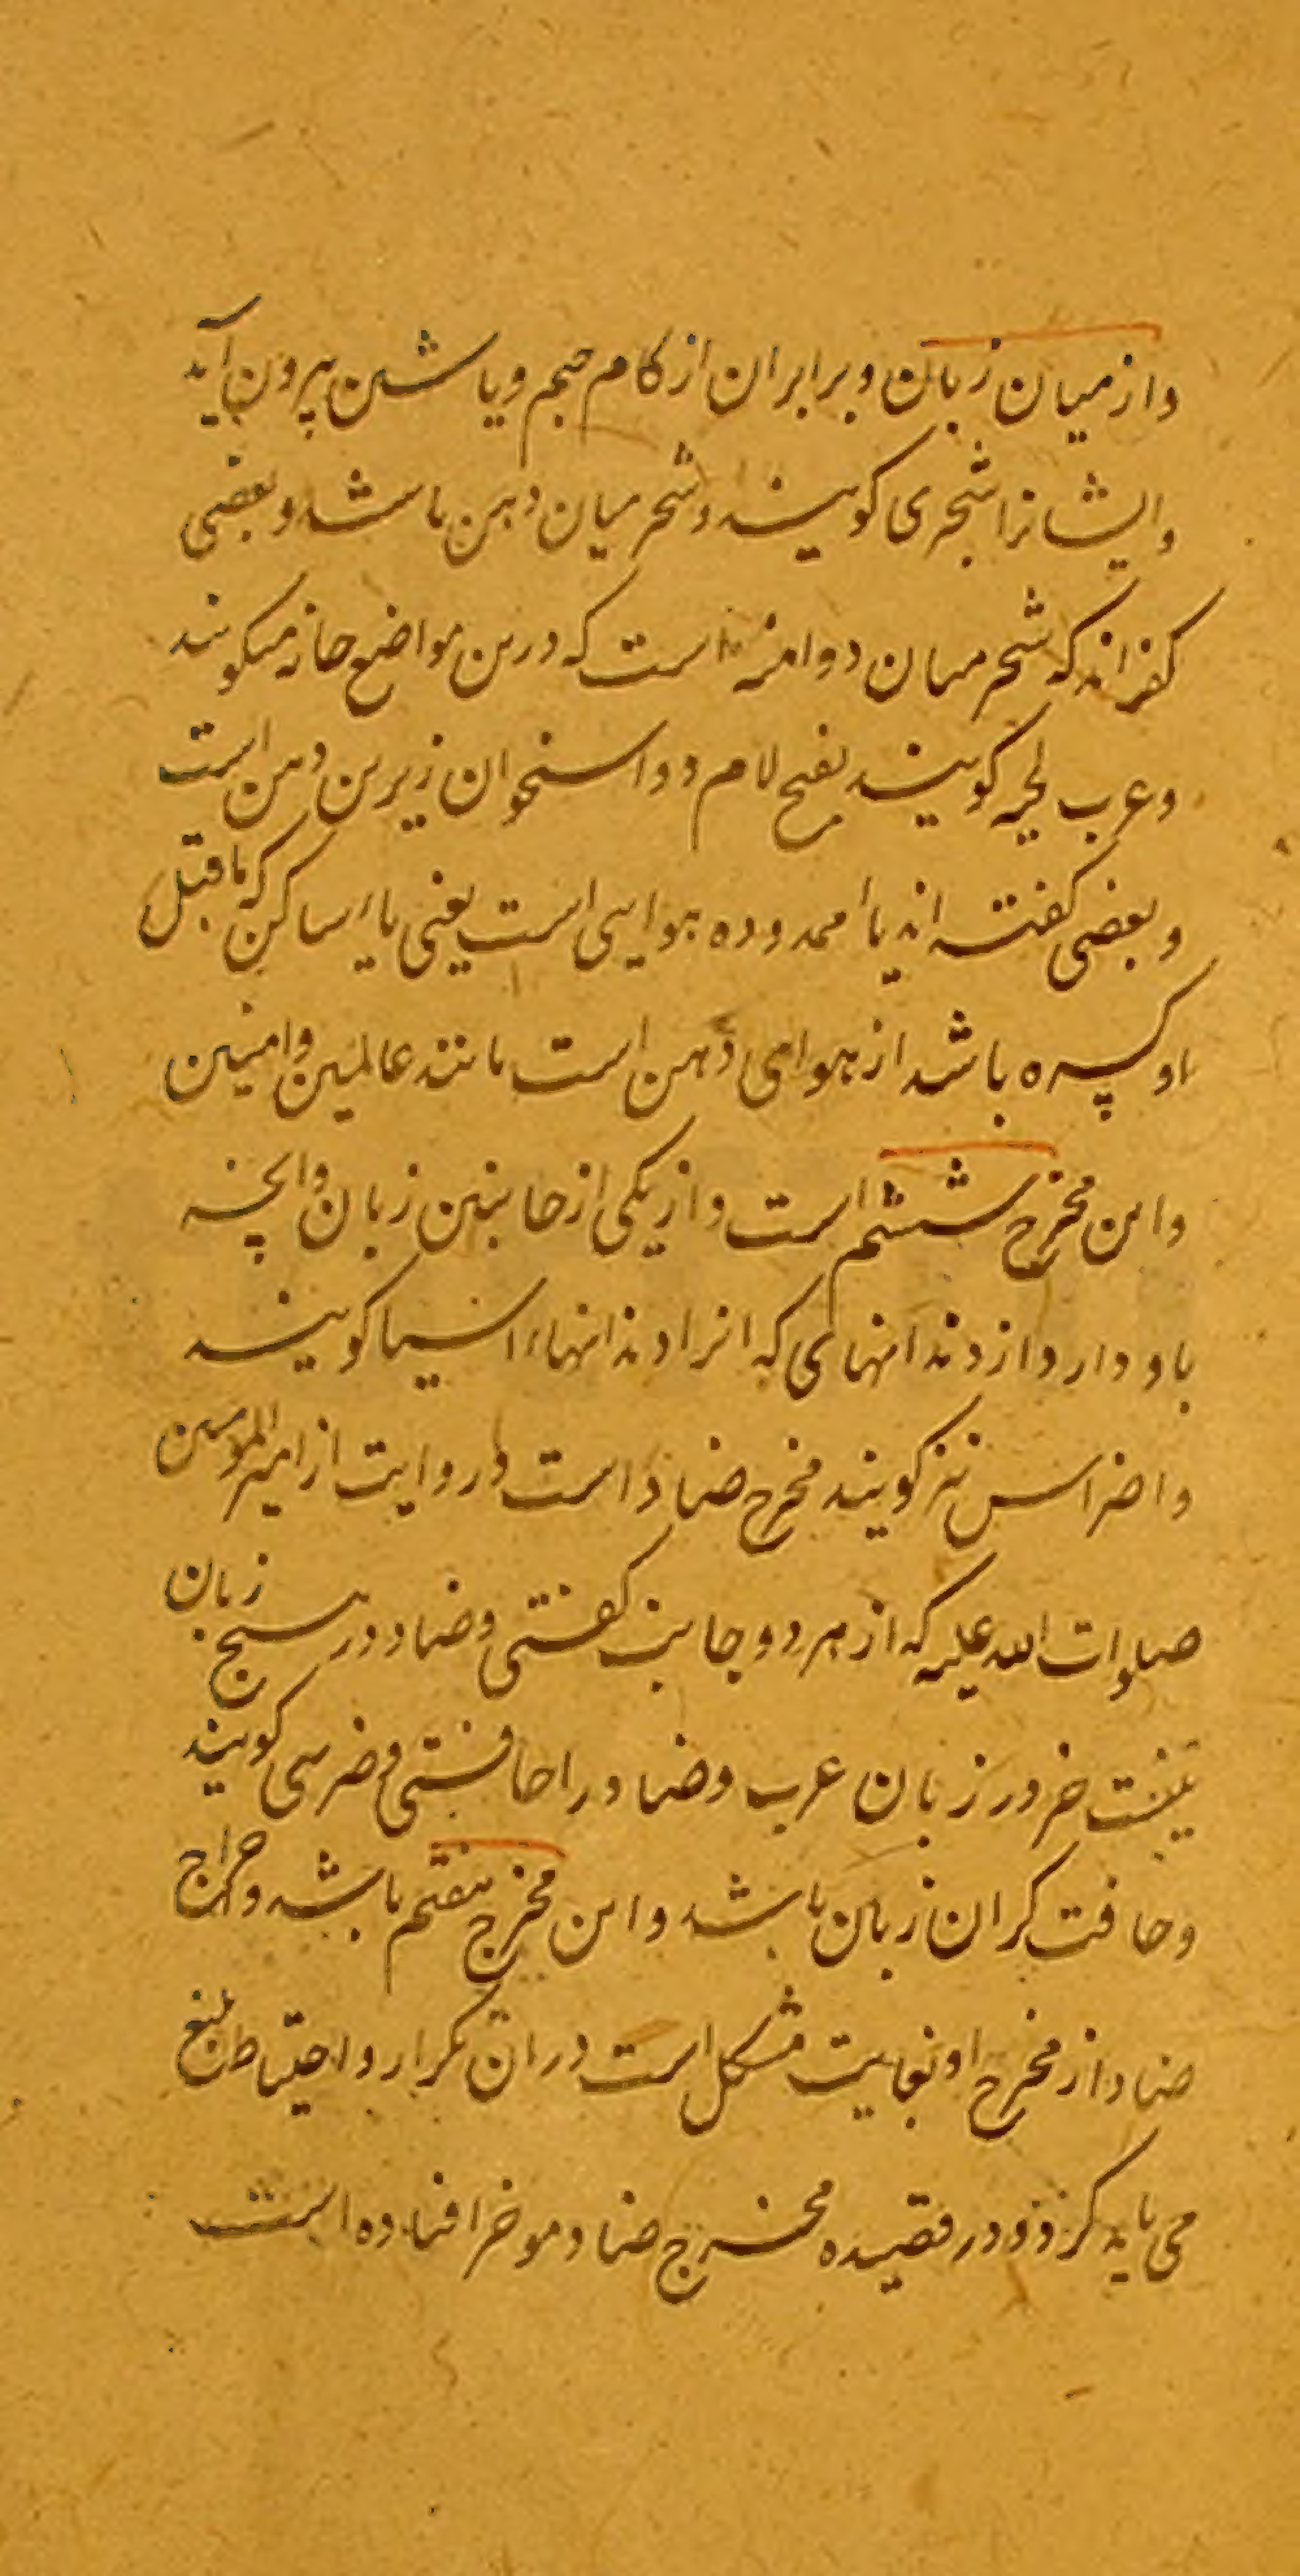 واز میان زبان و برابر ان از کام جیم و یا شین بیرون آید
وایشانرا شجری کویند و شجر میان دهن باشد و بعضی
کفته اند که شجر میان دو است که درین مواضع جانه میکویند
و عرب لحیه کویند بفتح لام دو استخوان زیرین دهن است
و بعضی کفته اند یاٴ ممدوده هوایی است یعنی یاء ساکن که ماقبل
او کسره باشد از هوای دهن است مانند عالمین و امنین
و این مخرج ششم است و از یکی از جانبین زبان و انچه
باو دارد از دندانهای که انرا دندانهاء اسیا کویند
و اضراس نیز کویند مخرج ضاد است و روایت از امیرالمومنین
صلوات الله علیه که از هر دو جانب کفتی و ضاد در هیچ زبان
نیست جز در زبان عرب و ضاد را حافتی و ضرسی کویند
و حافت کران زبان باشد و این مخرج هفتم باشد و اخراج
ضاد از مخرج او بغایت مشکل است در ان تکرار و احتیاط بلیغ
می باید کرد و در قصیده مخرج ضاد موخر افتاده است